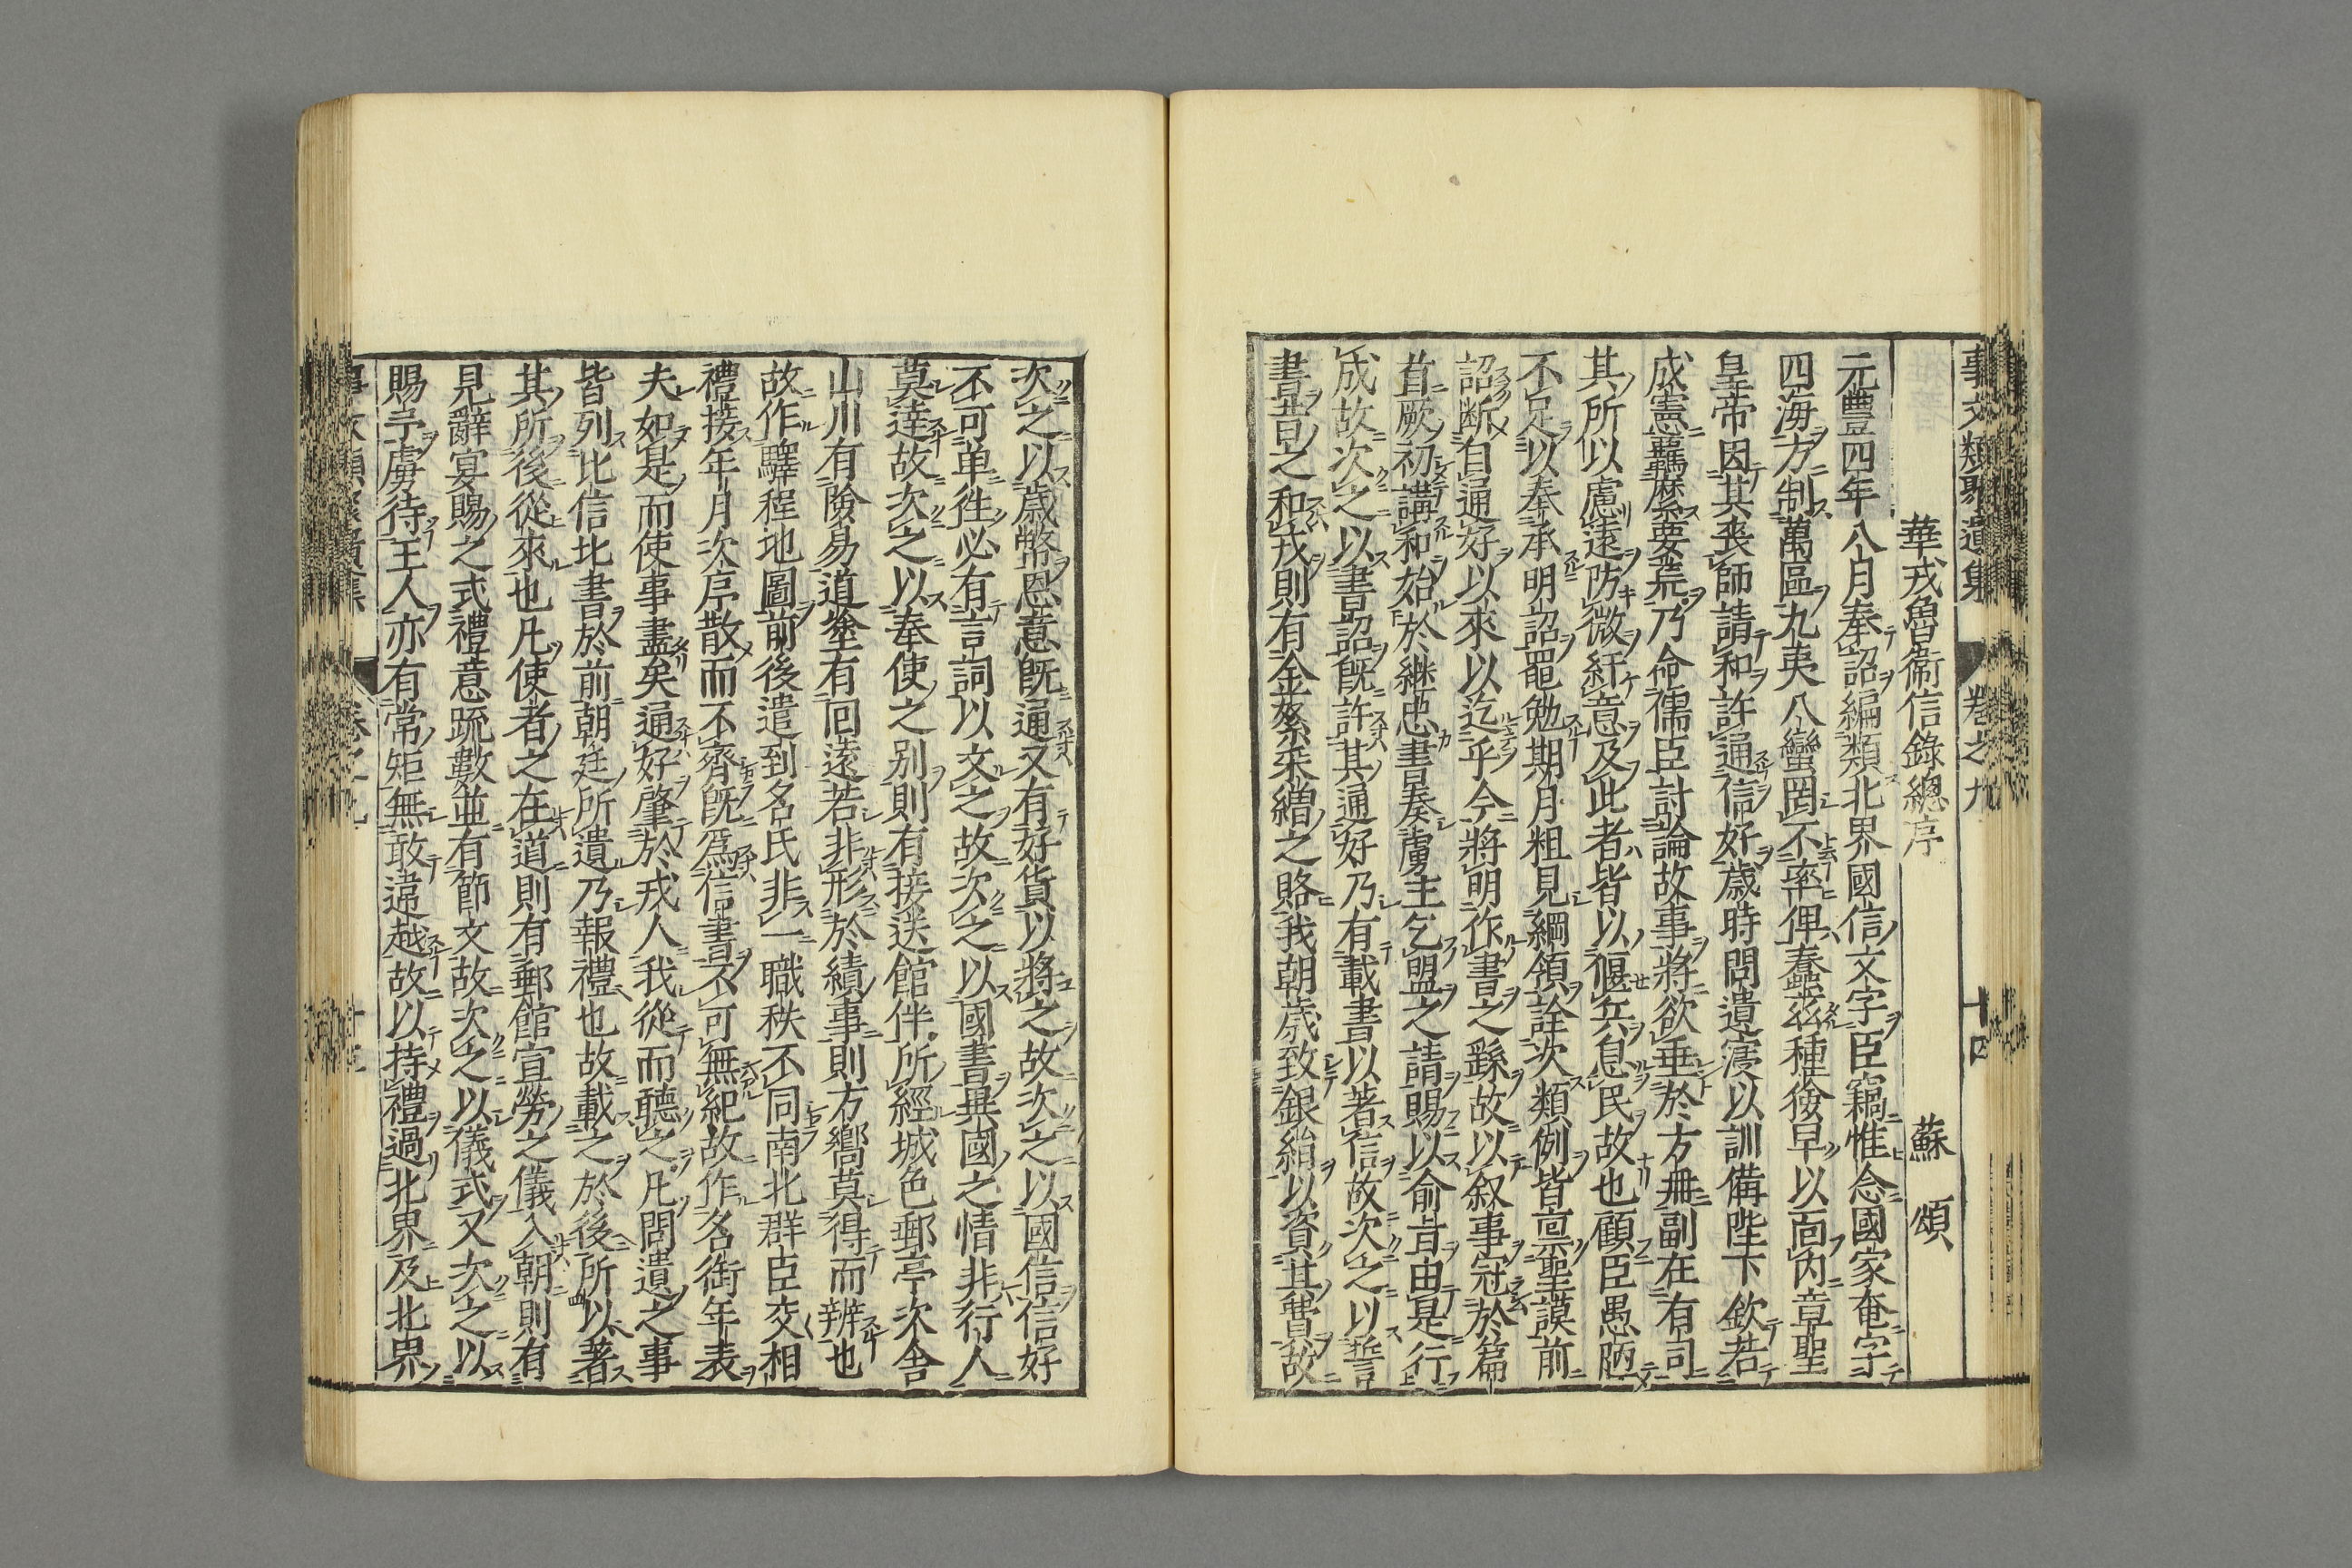 事文類聚遺集 卷之九 十四
華戎魯衞信錄總序 蘇頌
元豐四年八月奉詔編類北界國信文字臣竊惟念國家奄宇
四海方制萬區九夷八蠻罔不率俾蠢茲種後早以面內章聖
皇帝因其喪師請和許通信好歲時問遺寖以訓備陛下欽若
成憲羈縻要荒乃命儒臣討論故事將欲垂於方冊副在有司
其所以慮遠防微紆意及此者皆以偃兵息民故也顧臣愚陋
不足以奉承明詔黽勉期月粗見綱領詮次類例皆稟聖謨前
詔斷自通好以來以迄乎今將明作書之繇故以叙事冠於篇
首厥初講和始於繼忠書奏虜主乞盟之請賜以俞旨由是行
成故次之以書詔既許其通好乃有載書以著信故次之以誓
書昔之和戎則有金絮采繒之賂我朝歲致銀絹以資其費故
次之以歲幣恩意既通又有好貨以將之故次之以國信信好
不可單徃必有言詞以文之故次之以國書異國之情非行人
莫達故次之以奉使之别則有接送館伴所經城邑郵亭次舍
山川有險易道塗有回遠若非形於績事則方嚮莫得而辨也
故作驛程地圖前後遣到名氏非一職秩不同南北群臣交相
禮接年月次序散而不齊既爲信書不可無紀故作名銜年表
夫如是而使事盡矣通好肇於戎人我從而聽之凡問遺之事
皆列比信北書於前朝廷所遺乃報禮也故載之於後所以著
其所後從來也凡使者之在道則有郵館宣勞之儀入朝則有
見辭宴賜之式禮意疏數並有節文故次之以儀式又次之以
賜予虜待王人亦有常矩無敢違越故以持禮過北界及北界